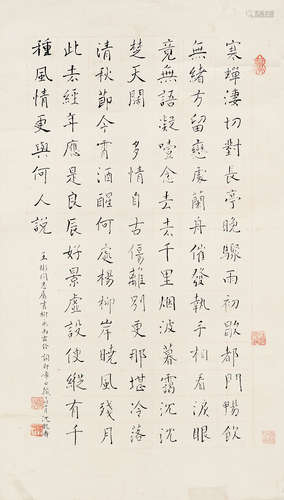 寒蟬淒切對長亭晚驟雨初歇都門暢飲
無緒方留戀處蘭舟催發執手相看淚眼
竟無語凝噎念去去千里烟波暮靄沈沈
楚天闊 多情自古傷離別更那堪冷落
清秋節今宵酒醒何處楊柳岸曉風殘月
此去經年應是良辰好景虛設使縱有千
種風情更與何人說
同志屬書柳永雨霖鈴詞